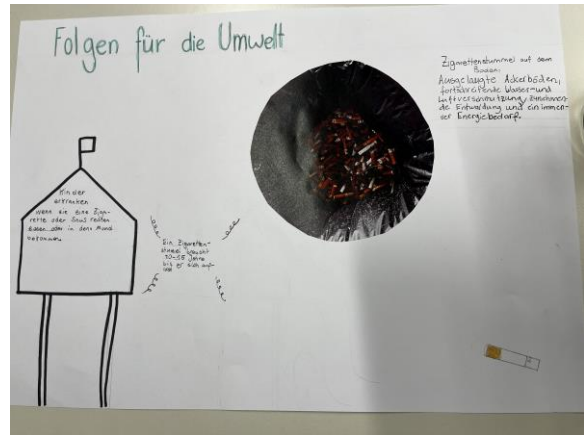 Folgen für die Umwelt
Zigarettenstummel auf dem
Boden:
Ausgelaugte Ackerböden,
fortschreitende Wasser- und
Luftverschmutzung, zunehmen-
de Entwaldung und ein immen-
ser Energiebedarf.
Kinder
erkranken
wenn sie eine Ziga-
rette oder Snus
essen oder in den Mund
Ein Zigaretten-
stummel braucht
10-15 Jahre
bis er sich auf-
löst